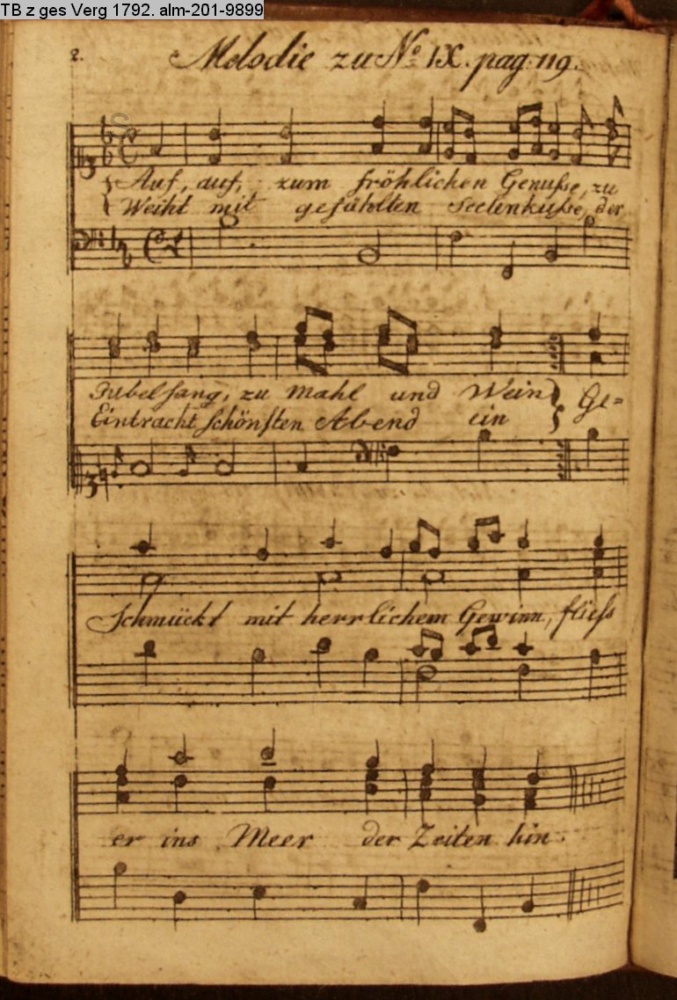 TB z ges Verg 1792. alm-201-9899
2.
Melodie zu No IX. pag: 119.
Auf, auf, zum fröhlichen Genuße, zu
Weiht mit gefühlten Seelenkuße, der
Jubelsang, zu Mahl und Wein
Ge=
Eintracht schönsten Abend ein
Schmückt mit herrlichem Gewinn, fliess
er ins Meer der Zeiten hin.